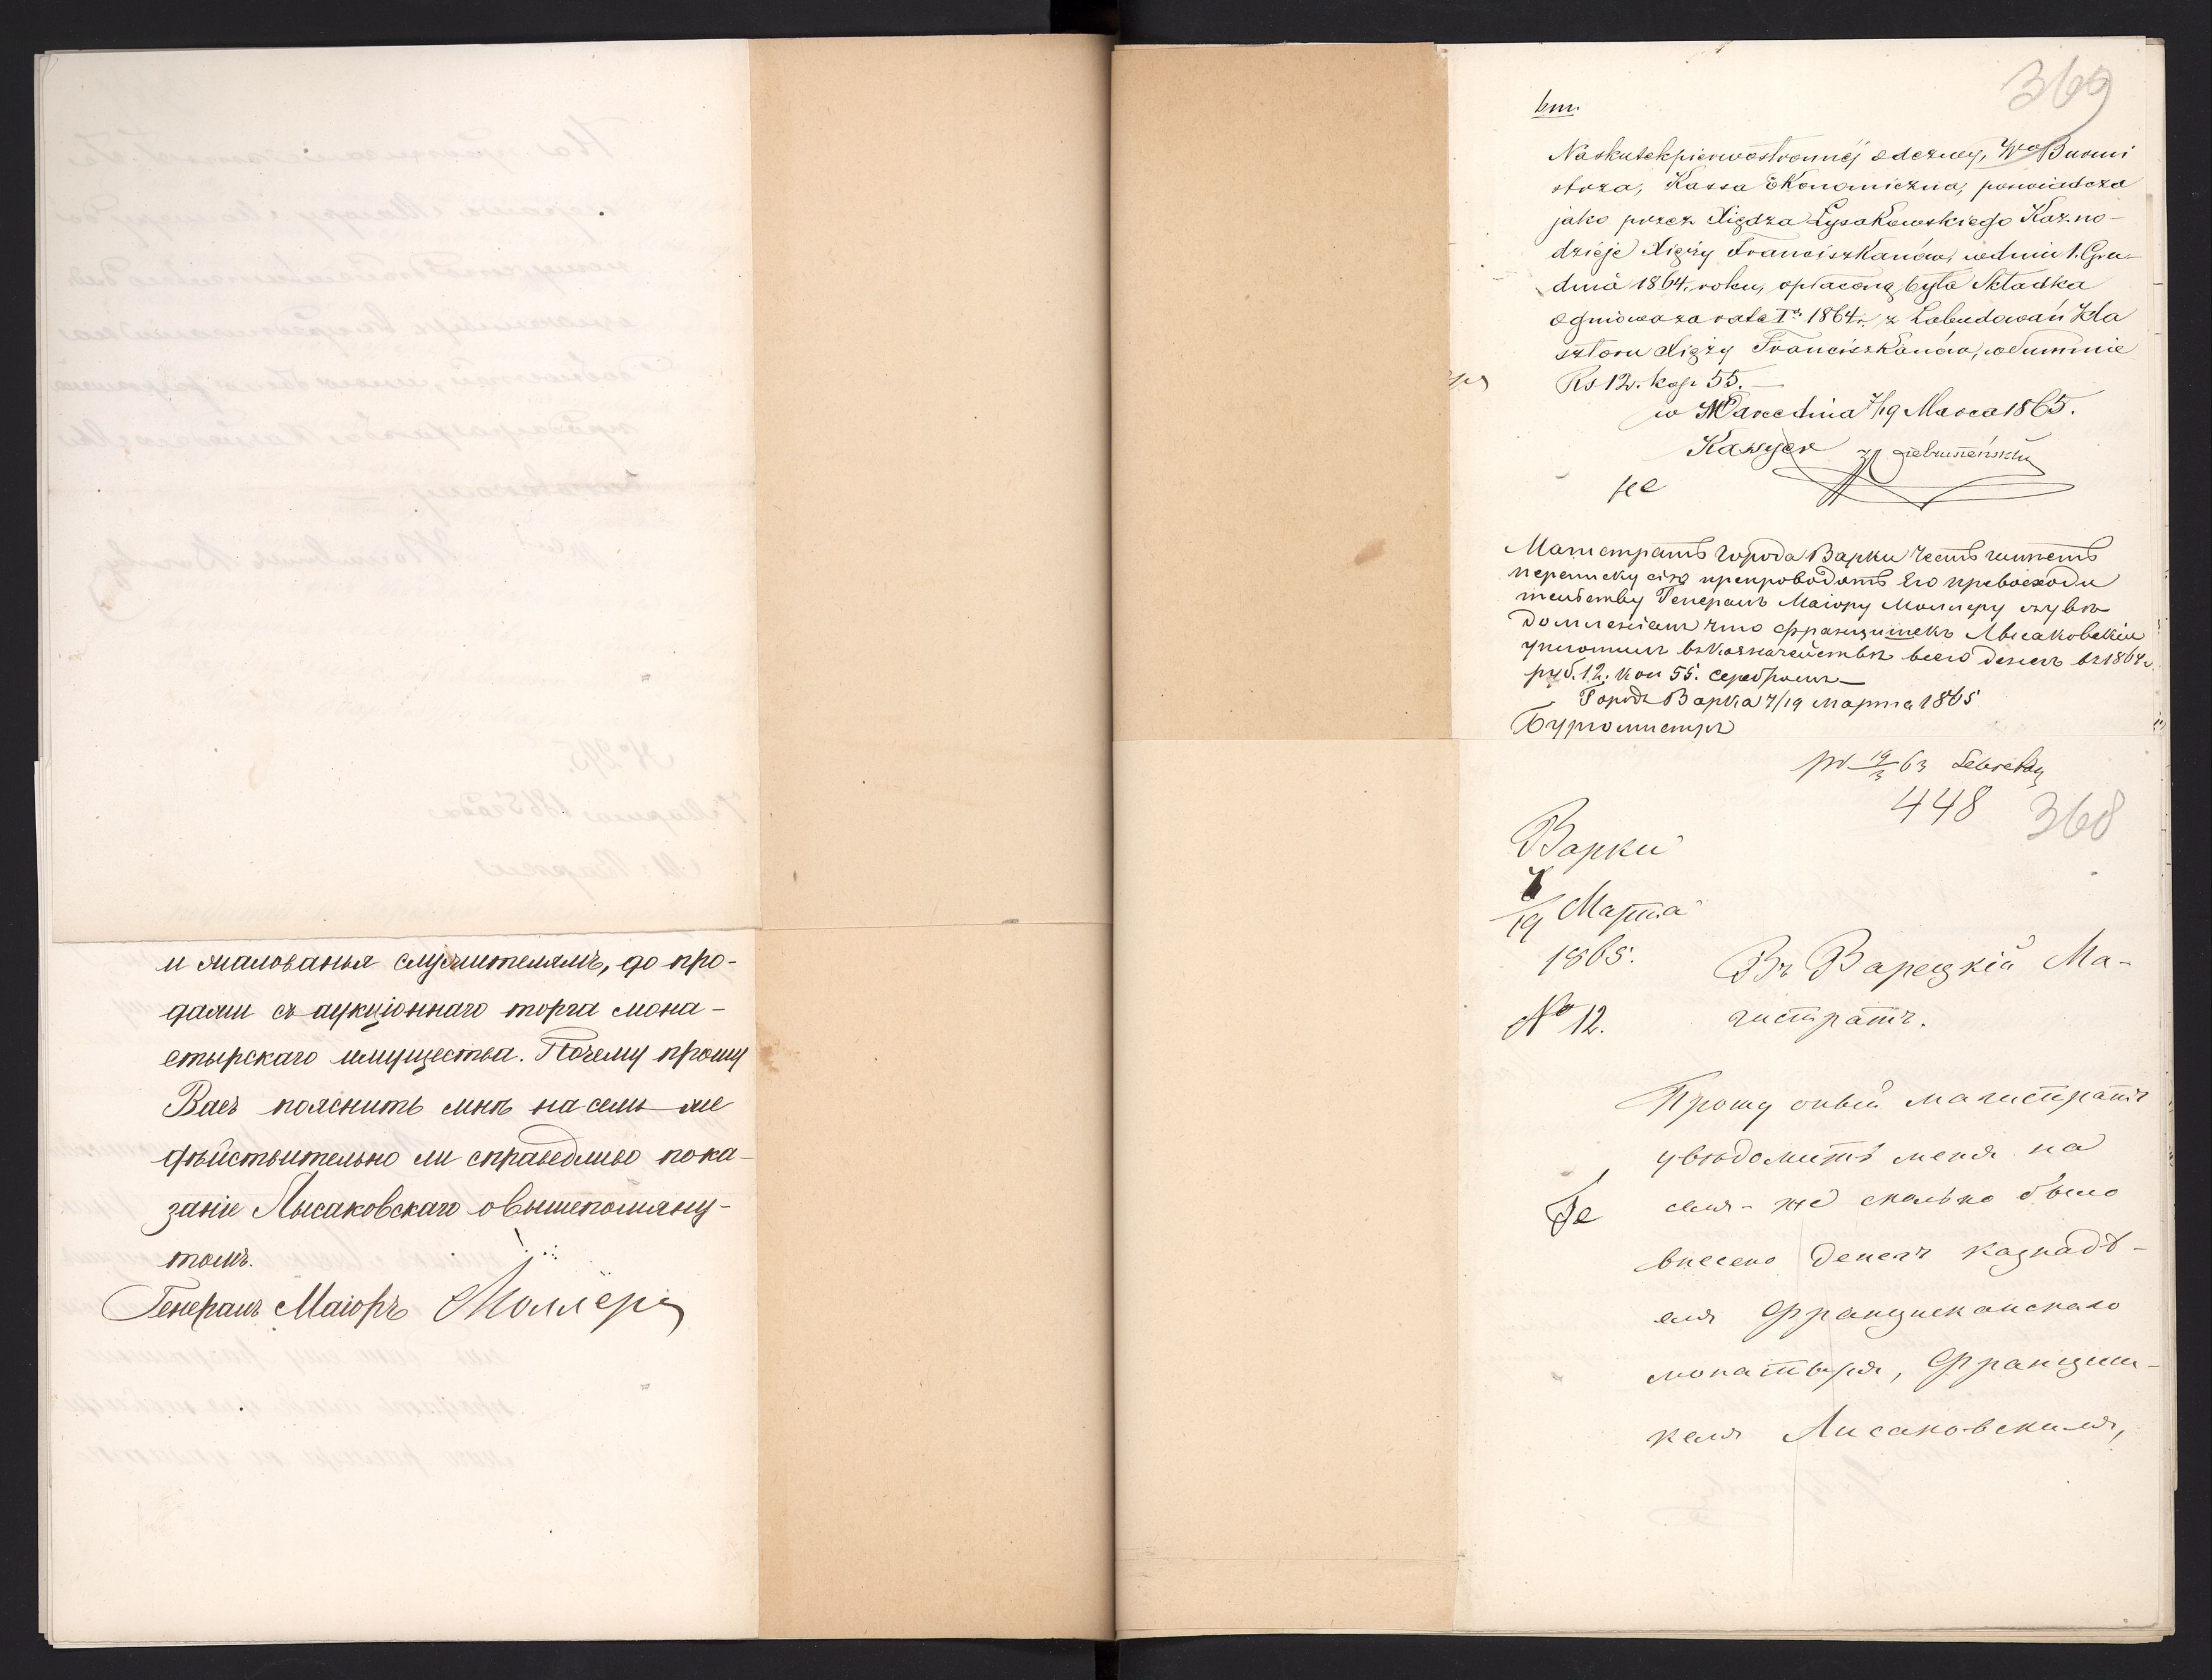 и жалованья служителямъ, до про-
дажи съ аукціоннаго торга мона-
стырскаго имущества. Почему прошу
Васъ пояснить мнѣ на семъ же
дѣйствительно ли справедливо пока-
заніе Лысаковскаго о вышепомяну-
томъ.
Генералъ Маіоръ Моллеръ
369
bm.
Na skutek pierwostronnéj odezwy, Wgo Burmi
strza, Kassa Ekonomiczna, poswiadcza
jako przez Xiędza Łysakowskiego Kazno-
dzieje Xięży Franciszkanów, w dniu 1. Gru-
dnia 1864. roku, opłaconą była Składka
ogniowa za ratę Ią 1864r. z Zabudowań Kla
sztoru Xięży Franciszkanów, w summie
Rs 12. kop 55.
w Warce dnia 7/19 Marca 1865.
Kassyer
Магистратъ города Варки честь имѣетъ
переписку сію препроводить Его превосходи
тельству Генералъ Маіору Моллеру съ увѣ
домленіемъ что Францишекъ Лысаковскій
уплотилъ въ Казначействѣ всего денегъ въ 1864 г.
руб. 12. коп 55. серебромъ
Городъ Варка 7/19 Марта 1865
Бургомистръ
448 368
Варки
7/19 Марта
1865.
Въ Варецкій Ма-
№ 12.
гистратъ.
Прошу оный магистратъ
увѣдомить меня на
семъ-же сколько было
внесено денегъ казнадѣ-
емъ Францисканскаго
монастыря, Францыш-
комъ Лисаковскимъ,